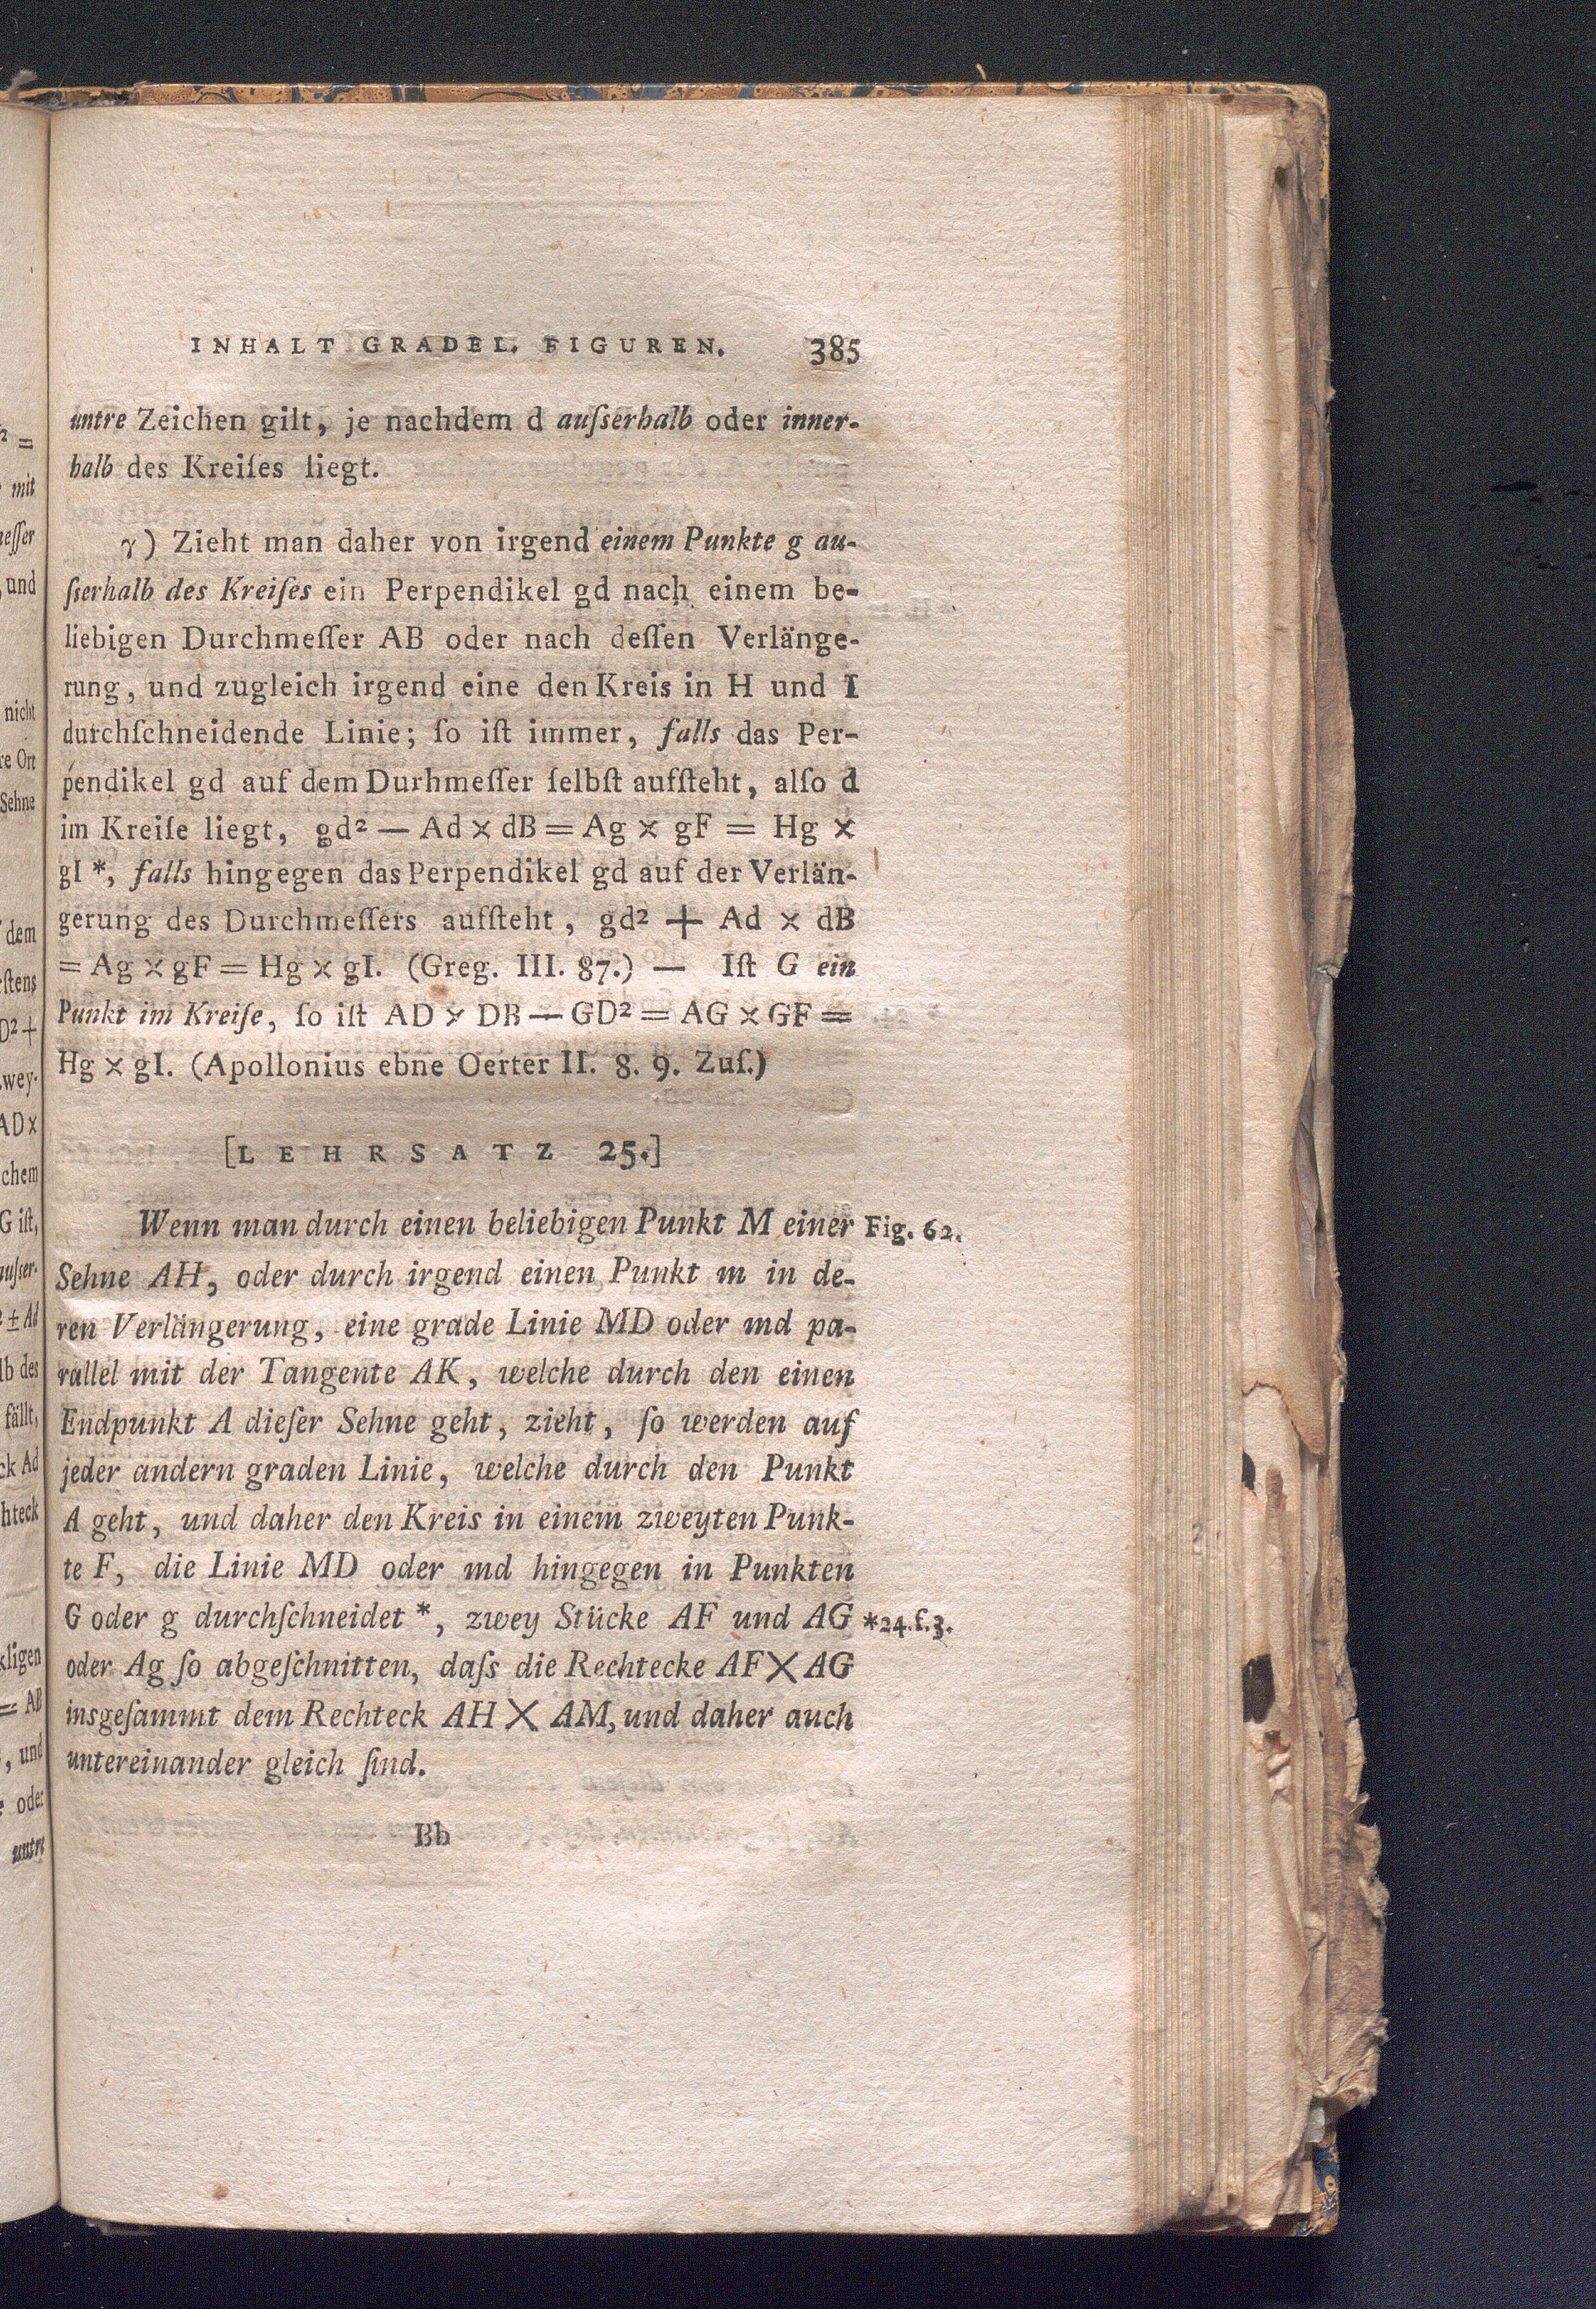 INHALT GRADEL. FIGUREN. 385
untre Zeichen gilt, je nachdem d auſserhalb oder inner-
halb des Kreiſes liegt.
γ) Zieht man daher von irgend einem Punkte g au-
ſserhalb des Kreiſes ein Perpendikel gd nach einem be-
liebigen Durchmeſſer AB oder nach deſſen Verlänge-
rung, und zugleich irgend eine den Kreis in H und I
durchſchneidende Linie; ſo iſt immer, falls das Per-
pendikel gd auf dem Durhmeſſer ſelbſt aufſteht, alſo d
im Kreiſe liegt, gd² — Ad × dB = Ag × gF = Hg ×
gI *, falls hingegen das Perpendikel gd auf der Verlän-
gerung des Durchmeſſers aufſteht, gd² + Ad × dB
= Ag × gF = Hg × gI. (Greg. III. 87.) — Iſt G ein
Punkt im Kreiſe, ſo iſt AD × DB — GD² = AG × GF =
Hg × gI. (Apollonius ebne Oerter II. 8. 9. Zuſ.)
[LEHRSATZ 25.]
Wenn man durch einen beliebigen Punkt M einer Fig. 62.
Sehne AH, oder durch irgend einen Punkt m in de-
ren Verlängerung, eine grade Linie MD oder md pa-
rallel mit der Tangente AK, welche durch den einen
Endpunkt A dieſer Sehne geht, zieht, ſo werden auf
jeder andern graden Linie, welche durch den Punkt
A geht, und daher den Kreis in einem zweyten Punk-
te F, die Linie MD oder md hingegen in Punkten
G oder g durchſchneidet *, zwey Stücke AF und AG *24. f. 3.
oder Ag ſo abgeſchnitten, daſs die Rechtecke AF × AG
insgeſammt dem Rechteck AH × AM, und daher auch
untereinander gleich ſind.
Bb